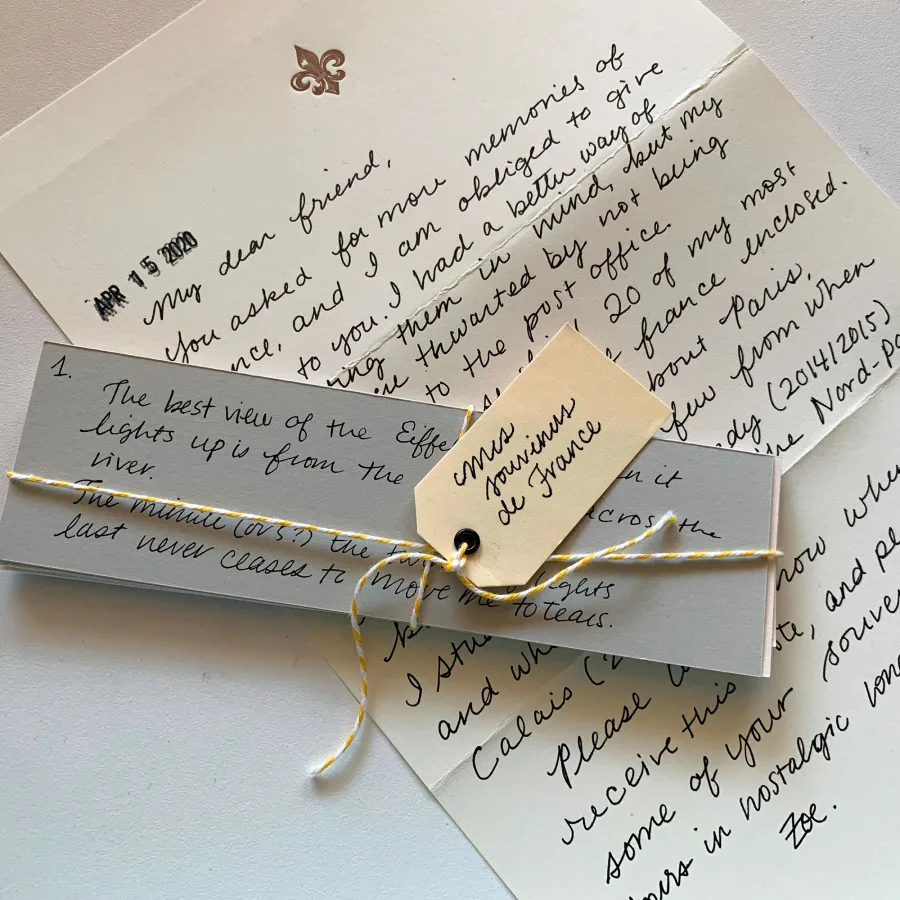 APR 15 2020
My dear friend,
You asked for more memories of
nce, and I am obliged to give
to you. I had a better way of
ing them in mind, but my
thwarted by not being
to the post office.
20 of my most
france enclosed.
bout Paris,
few from when
dy (2014/2015)
the Nord-Pa
now whe
I stu
and wh
te, and ple
Calais (2
Please
receive this
souve
some of your
in nostalgic
Zoe.
1.
The best view of the Eiffe n it
lights up is from the acros the
river.
The minute (or 5?) the lights
last never ceases to move me to tears.
mes
souvenirs
de France